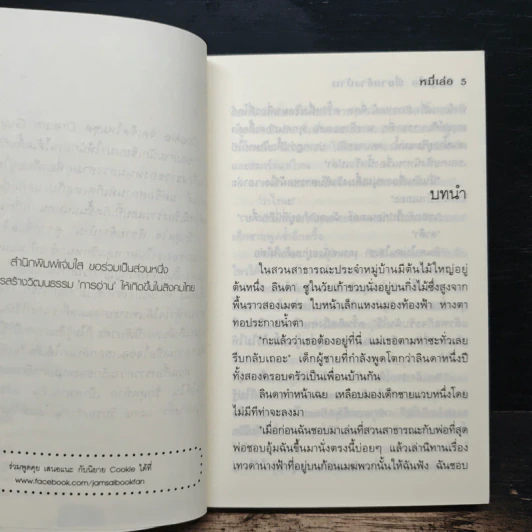 สำนักพิมพ์แจ่มใส ขอร่วมเป็นส่วนหนึ่ง
รสร้างวัฒนธรรม 'การอ่าน' ให้เกิดขึ้นในสังคมไทย
ร่วมพูดคุย เสนอแนะ กับนิยาย Cookie ได้ที่
www.facebook.com/jamsaibookfan
หมี่เล่อ 5
บทนำ
ในสวนสาธารณะประจำหมู่บ้านมีต้นไม้ใหญ่อยู่
ต้นหนึ่ง ลินดา ซูในวัยเก้าขวบนั่งอยู่บนกิ่งไม้ซึ่งสูงจาก
พื้นราวสองเมตร ใบหน้าเล็กแหงนมองท้องฟ้า หางตา
ทอประกายน้ำตา
'กะแล้วว่าเธอต้องอยู่ที่นี่ แม่เธอตามหาซะทั่วเลย
รีบกลับเถอะ' เด็กผู้ชายที่กำลังพูดโตกว่าลินดาหนึ่งปี
ทั้งสองครอบครัวเป็นเพื่อนบ้านกัน
ลินดาทำหน้าเฉย เหลือบมองเด็กชายแวบหนึ่งโดย
ไม่มีทีท่าจะลงมา
'เมื่อก่อนฉันชอบมาเล่นที่สวนสาธารณะกับพ่อที่สุด
พ่อชอบอุ้มฉันขึ้นมานั่งตรงนี้บ่อยๆ แล้วเล่านิทานเรื่อง
เทวดานางฟ้าที่อยู่บนก้อนเมฆพวกนั้นให้ฉันฟัง ฉันชอบ